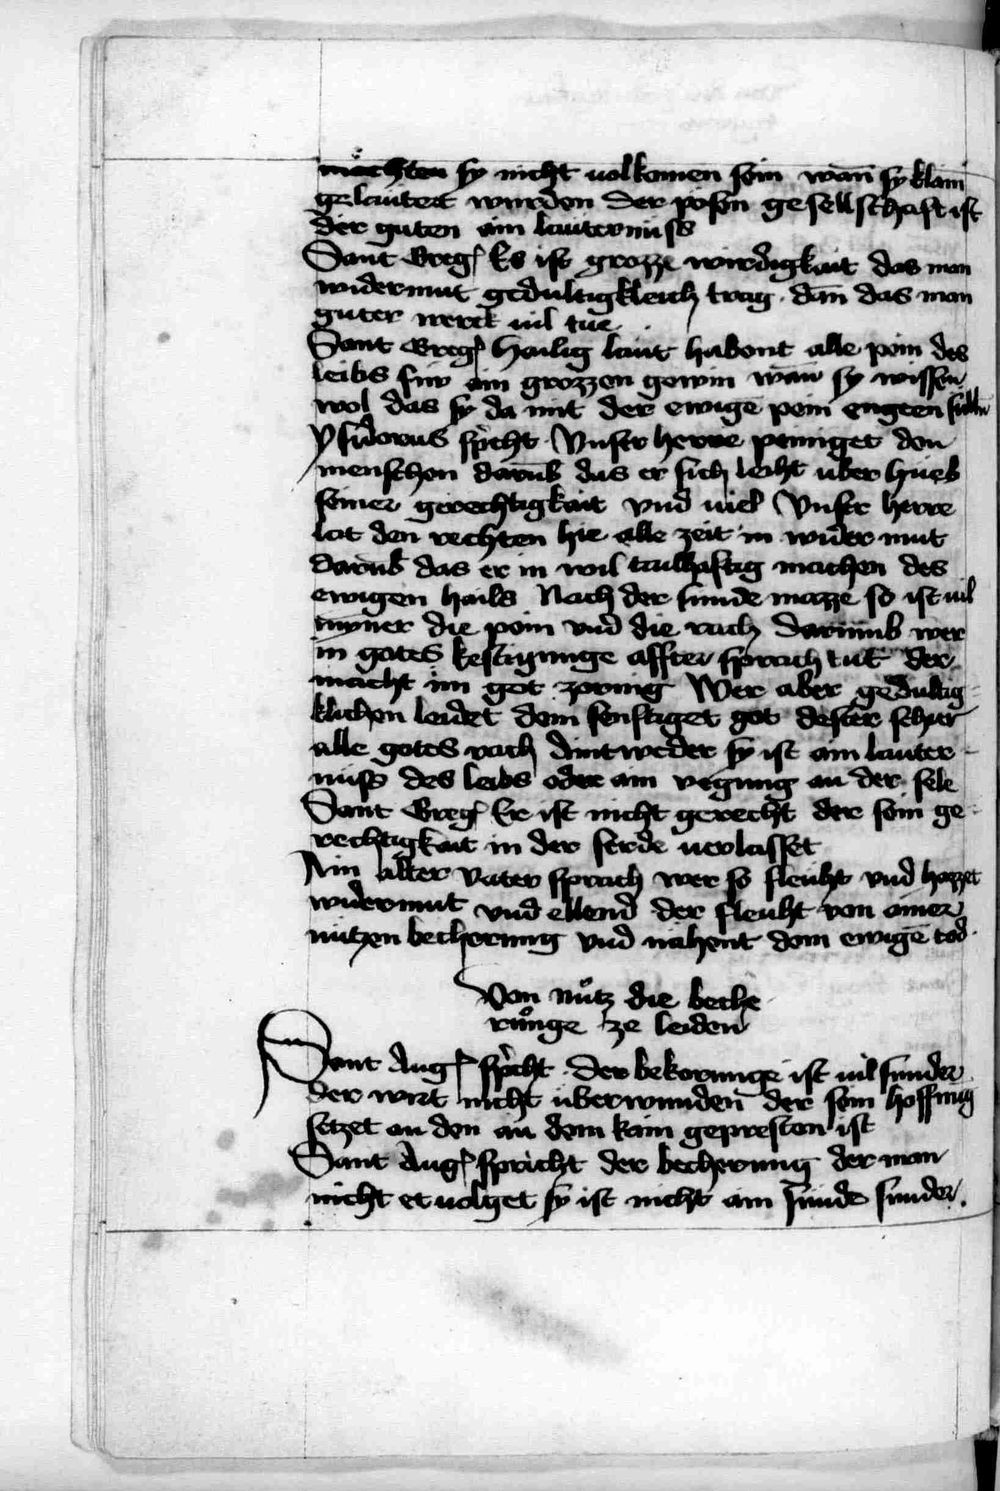 möchten sy nicht uolkomen sein wan̄ sy klain
gelautert wurden der pösen gesellschaft ist
der guten ain lauternuss
Sant Greg Es ist grozze wirdigkait das man
widermut gedultigkleich trag dan̄ das man
guter werck uil tue
Sant Greg Heilig laut habent alle pein des
leibs für ain grozzen gewin wan̄ sy wissen
wol das sy da mit der ewigē pein engeen sulln
ysidorus spͥcht Vnser herre peiniget den
menschen darūb das er sich leiht uber hueb
seiner gerechtigkait vnd uiel Vnser herre
lat den rechten hie alle zeit in wider mut
darūb das er in wil tailhaftig machen des
ewigen hails Nach der sunde mazze so ist uil
mynner die pein vnd die rach Darumb wer
in gotes kestigunge affter sprach tut der
macht im got zornig Wer aber gedultig
klichen leidet dem senftiget got dester scher
alle gotes rach Aintweder sy ist ain lauter
nuss des leibs oder ain vegung an der sele
Sant Greg Er ist nicht gerecht der sein ge
rechtigkait in der serde uerlasset
Ain alter vater sprach wer so fleuht vnd hazzet
widermut vnd ellend der fleuht von ainer
nutzen becherung vnd nahent dem ewigē tod
Von nuͦtz die beche
ruͦnge ze leiden
Sant Aug spͥcht der bekorunge ist uil sunder
der wirt nicht uberwunden der sein hoffnung
setzet an den an dem kain gepresten ist
Sant Aug spricht der becherung der man
nicht et uolget sy ist nicht ain sünde sunder